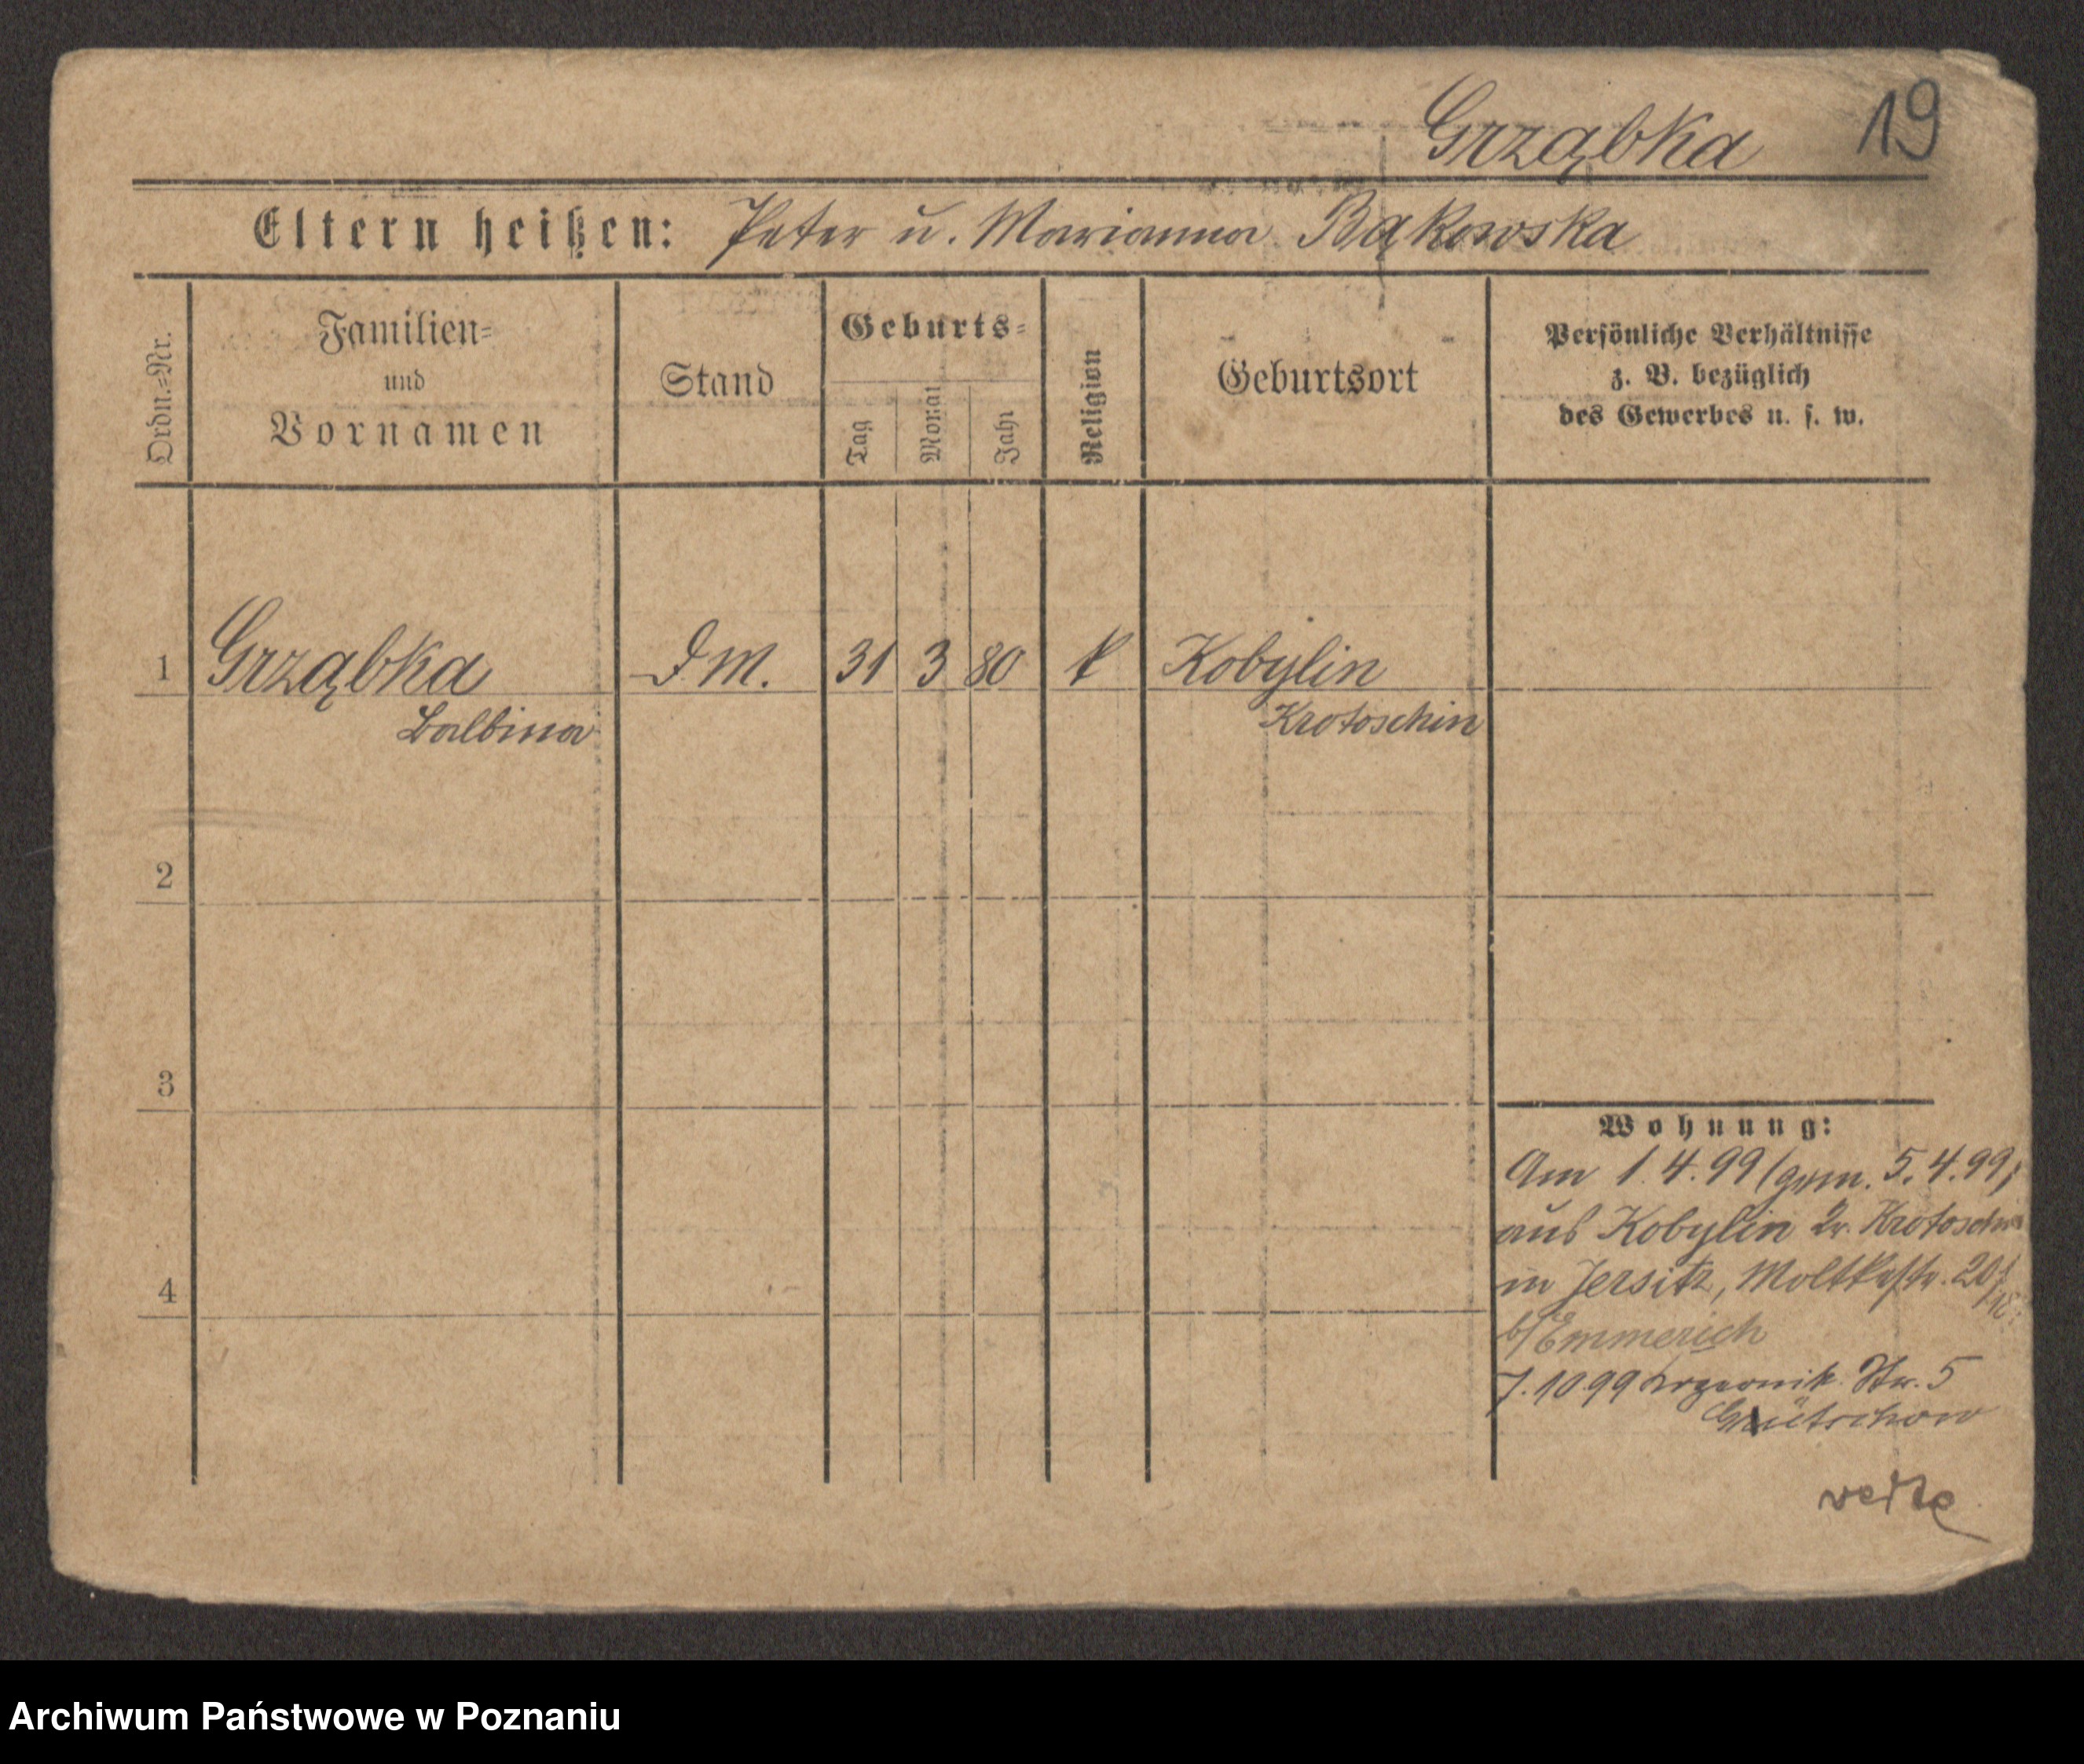 Grząbka 19
Eltern heißen: Peter u. Marianna Bąkowska
Ordn.=Nr.
Familien=
und
Vornamen
Stand
Geburts=
Tag
Monat
Jahr
Religion
Geburtsort
Persönliche Verhältnisse
z. B. bezüglich
des Gewerbes u. s. w.
1 Grząbka D M. 31 3 80 k Kobylin
Balbina Krotoschin
2
3
Wohnung:
Am 1.4.99 (gem. 5.4.99)
aus Kobylin Kr. Krotoschin
4
in Jersitz, Moltkestr. 20
b/Emmerich
7.10.99 Str. 5
Archiwum Państwowe w Poznaniu